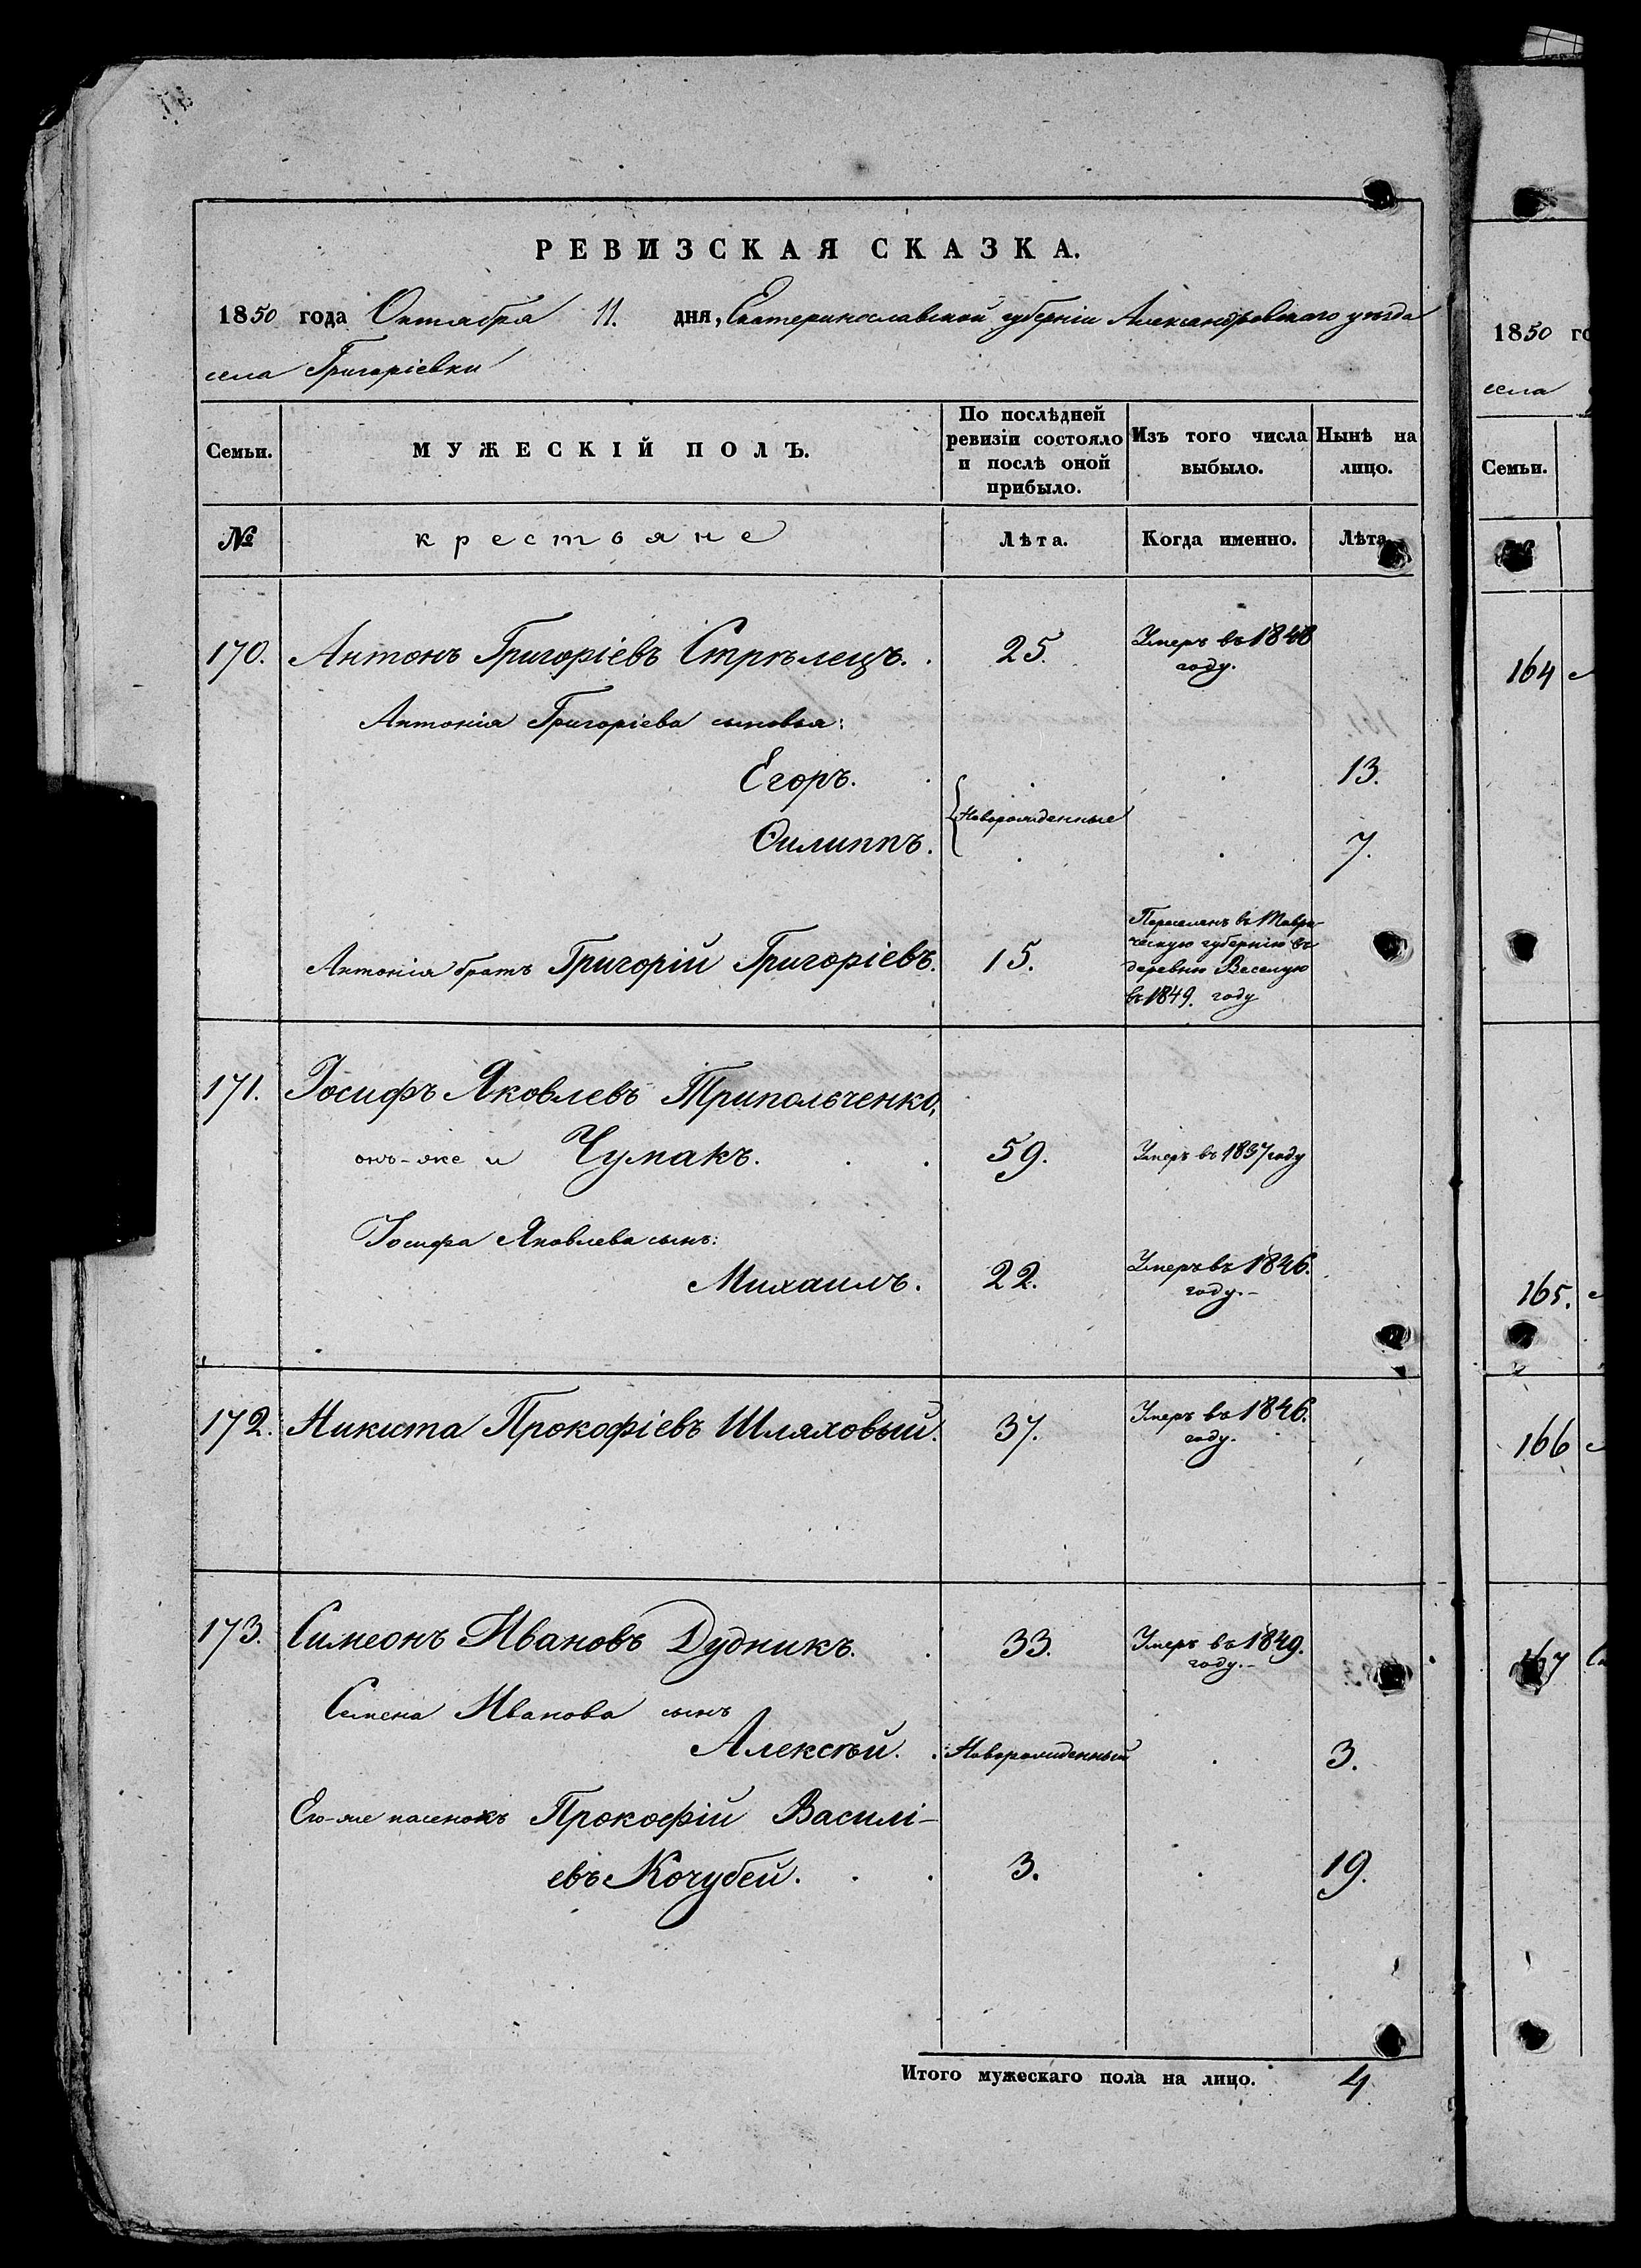 РЕВИЗСКАЯ СКАЗКА.
1850 года Октября 11. дня, Екатеринославской губерніи Александровского уѣзда
села Григоріевки
Семьи.
МУЖЕСКІЙ ПОЛЪ.
По послѣдней
ревизіи состояло
и послѣ оной
прибыло.
Изъ того числа
выбыло.
Нынѣ на
лицо.
№
крестьяне
Лѣта.
Когда именно.
Лѣта.
170. Антонъ Григоріевъ Стрѣлецъ. 25. Умеръ въ 1848
году.
Антонія Григоріева сыновья:
Егоръ. 13.
Новорожденные
Филиппъ. 7.
Переселенъ въ Таври-
ческую губернію въ
Антонія братъ Григорій Григоріевъ. 15. деревню Веселую
въ 1849. году
171. Іосифъ Яковлевъ Трипольченко,
онъ-же и Чумакъ. 59. Умеръ въ 1837 году
Іосифа Яковлева сынъ:
Михаилъ. 22. Умеръ въ 1846.
году.-
172. Никита Прокофіевъ Шляховый. 37. Умеръ въ 1846.
году.
173. Симеонъ Ивановъ Дудникъ. 33. Умеръ въ 1849.
году.-
Семена Иванова сынъ
Алексѣй. Новорожденный 3.
Его-же пасенокъ Прокофій Василі-
евъ Кочубей. 3. 19.
Итого мужескаго пола на лицо. 4
1850 го
села
Семьи.
164
165.
166
167